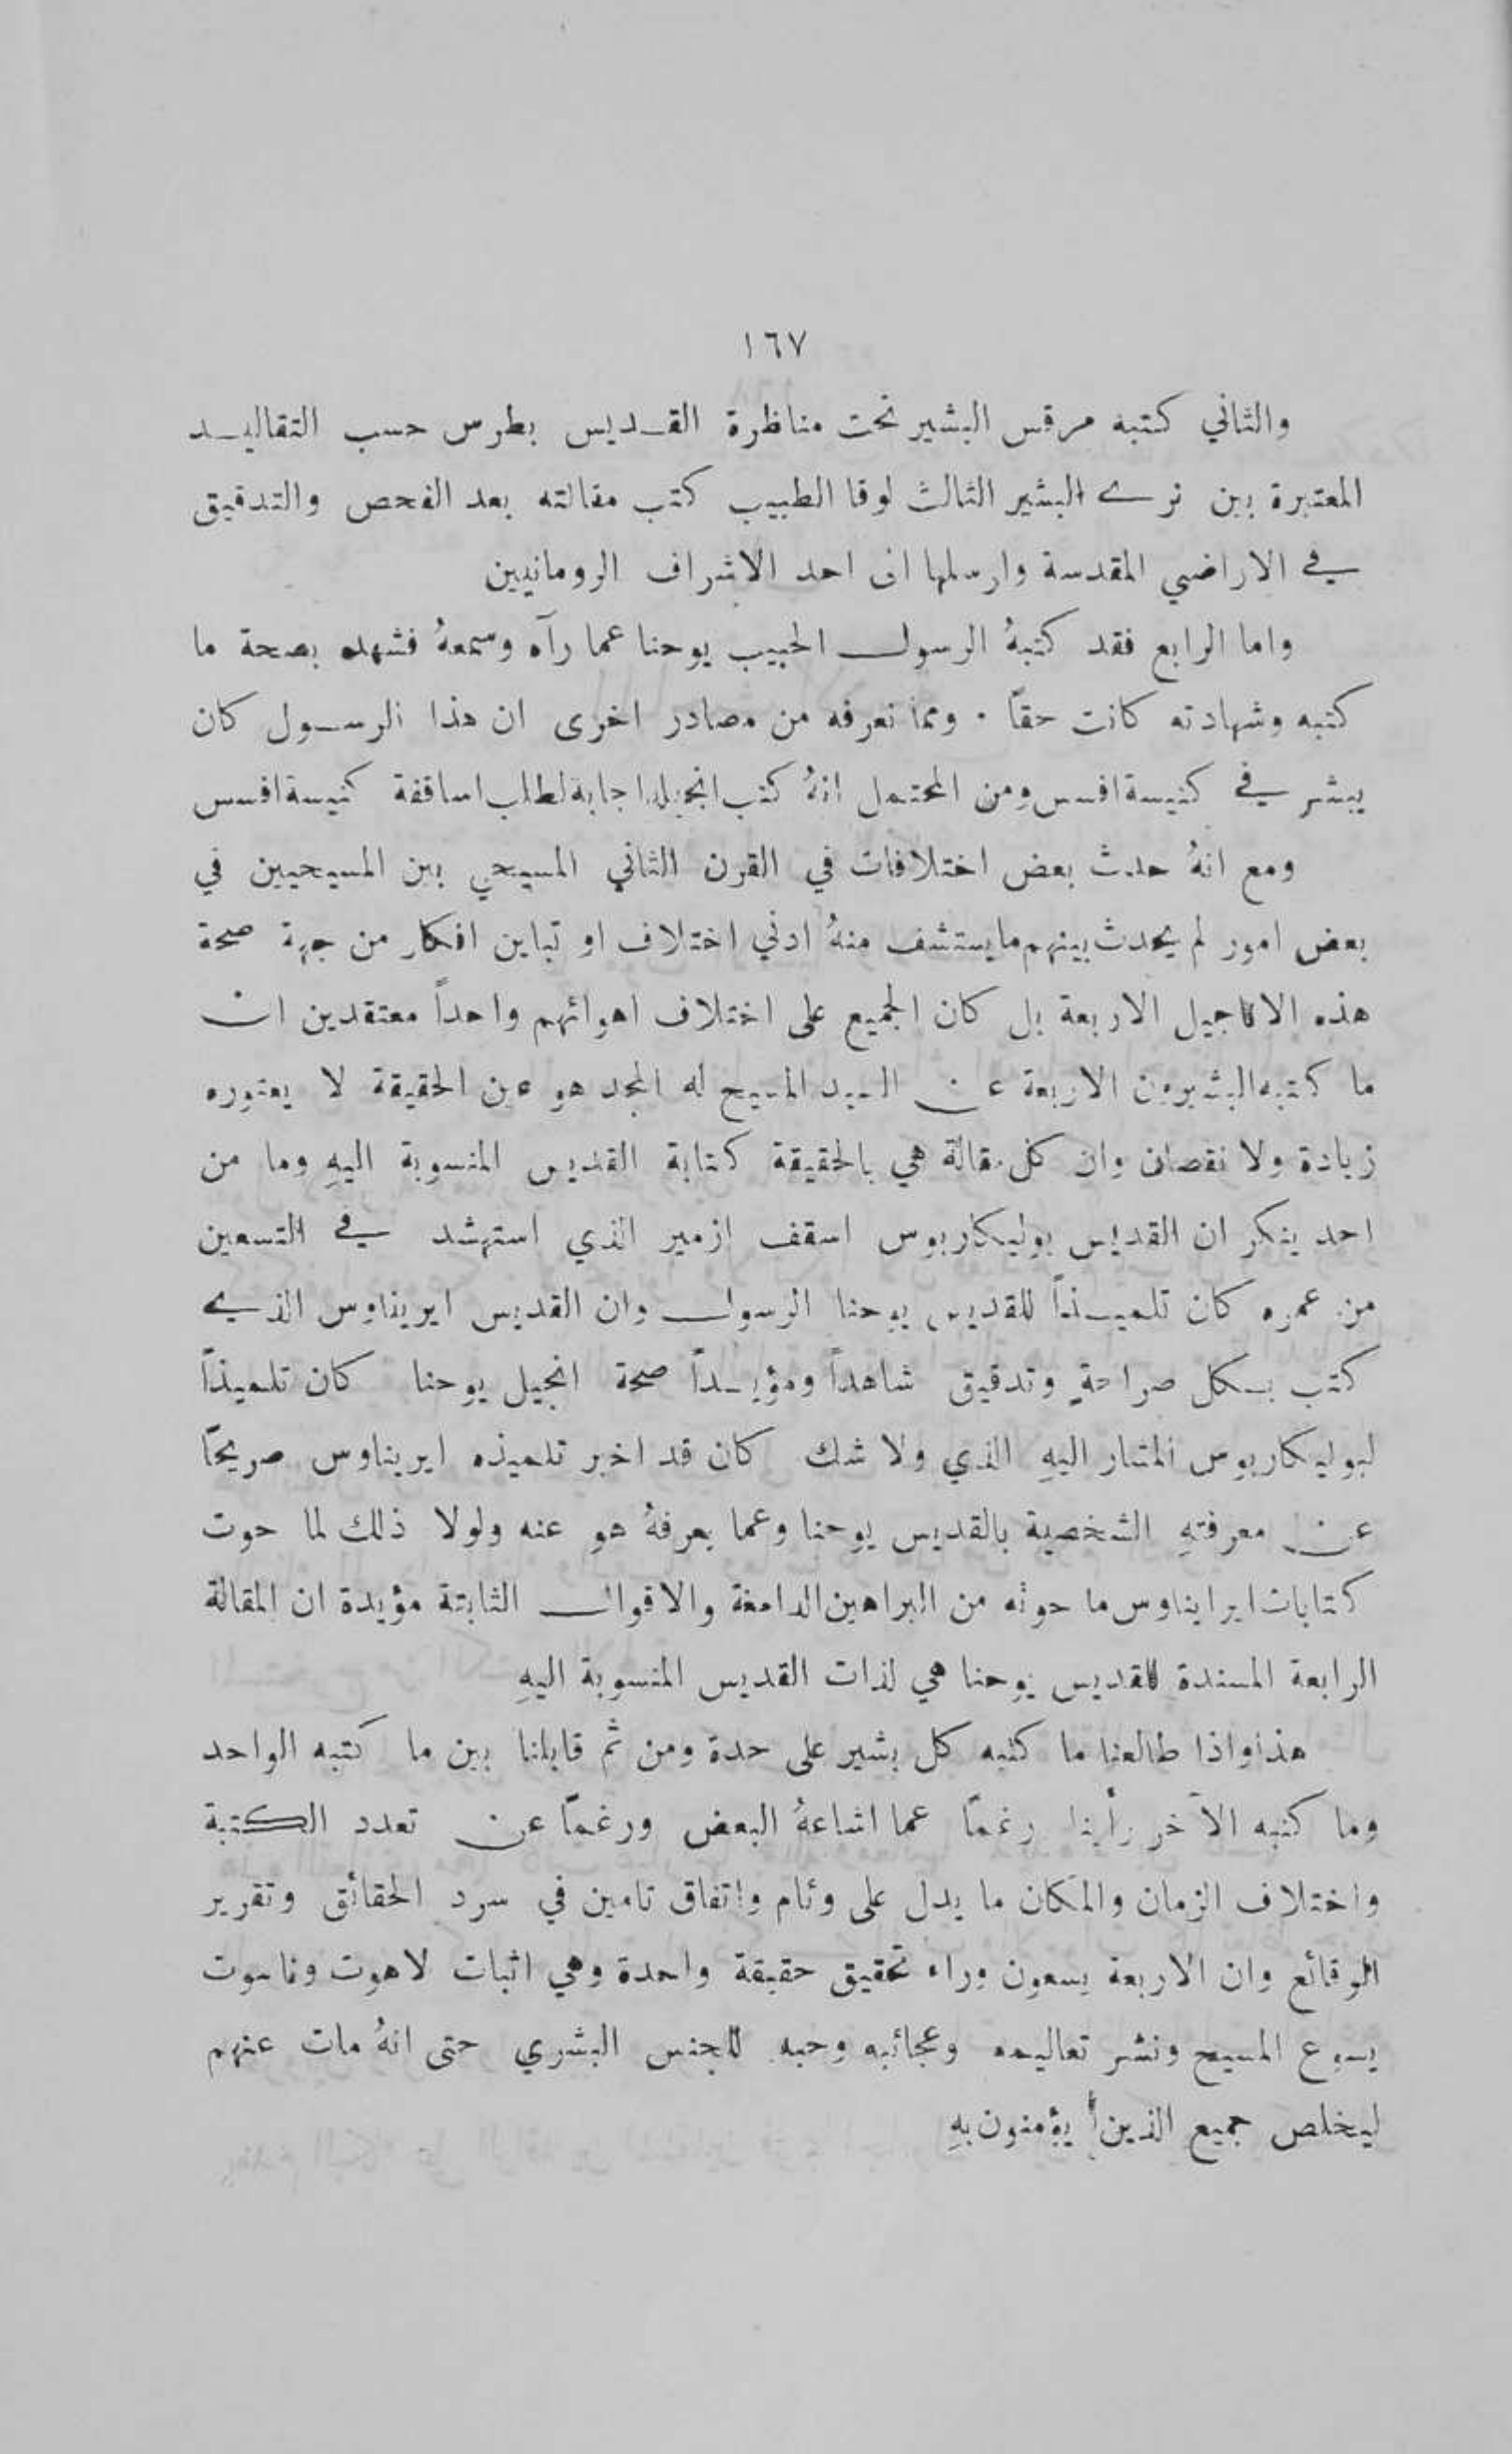 ١٦٧
والثاني كتبه مرقس البشير تحت مناظرة القديس بطرس حسب التقاليد
المعتبرة بين نرى البشير الثالث لوقا الطبيب كتب مقالته بعد الفحص والتدقيق
في الاراضي المقدسة وارسلها الى احد الاشراف الرومانيين
واما الرابع فقد كتبهُ الرسول الحبيب يوحنا عما رآه وسمعهُ فشهد بصحة ما
كتبه وشهادته كانت حقاً ٠ ومما نعرفه من مصادر اخرى ان هذا الرسول كان
يبشر في كنيسة افسس ومن المحتمل انهُ كتب انجيله اجابة لطلب اساقفة كنيسة افسس
ومع انهُ حدث بعض اختلافات في القرن الثاني المسيحي بين المسيحيين في
بعض امور لم يحدث بينهم ما يستشف منهُ ادنى اختلاف او تباين افكار من جهة صحة
هذه الاناجيل الاربعة بل كان الجميع على اختلاف اهوائهم واحداً معتقدين ان
ما كتبه البشيرون الاربعة عن السيد المسيح له المجد هو عين الحقيقة لا يعتوره
زيادة ولا نقصان وان كل مقالة هي بالحقيقة كتابة القديس المنسوبة اليهِ وما من
احد ينكر ان القديس بوليكاربوس اسقف ازمير الذي استهشد في التسعين
من عمره كان تلميذاً للقديس يوحنا الرسول وان القديس ايريناوس الذي
كتب بكل صراحةٍ وتدقيق شاهداً ومؤيداً صحة انجيل يوحنا كان تلميذاً
لبوليكاربوس المشار اليهِ الذي ولا شك كان قد اخبر تلميذه ايريناوس صريحاً
عن معرفتهِ الشخصية بالقديس يوحنا وعما يعرفهُ هو عنه ولولا ذلك لما حوت
كتابات ايرايناوس ما حوته من البراهين الدامغة والاقوال الثابتة مؤيدة ان المقالة
الرابعة المسندة للقديس يوحنا هي لذات القديس المنسوبة اليهِ
هذا واذا طالعنا ما كتبه كل بشير على حدة ومن ثم قابلنا بين ما كتبه الواحد
وما كتبه الآخر رأينا رغماً عما اشاعهُ البعض ورغماً عن تعدد الكتبة
واختلاف الزمان والمكان ما يدل على وئام واتفاق تامين في سرد الحقائق وتقرير
الوقائع وان الاربعة يسعون وراء تحقيق حقيقة واحدة وهي اثبات لاهوت وناسوت
يسوع المسيح ونشر تعاليمه وعجائبه وحبه للجنس البشري حتى انهُ مات عنهم
ليخلص جميع الذين يؤمنون بهِ